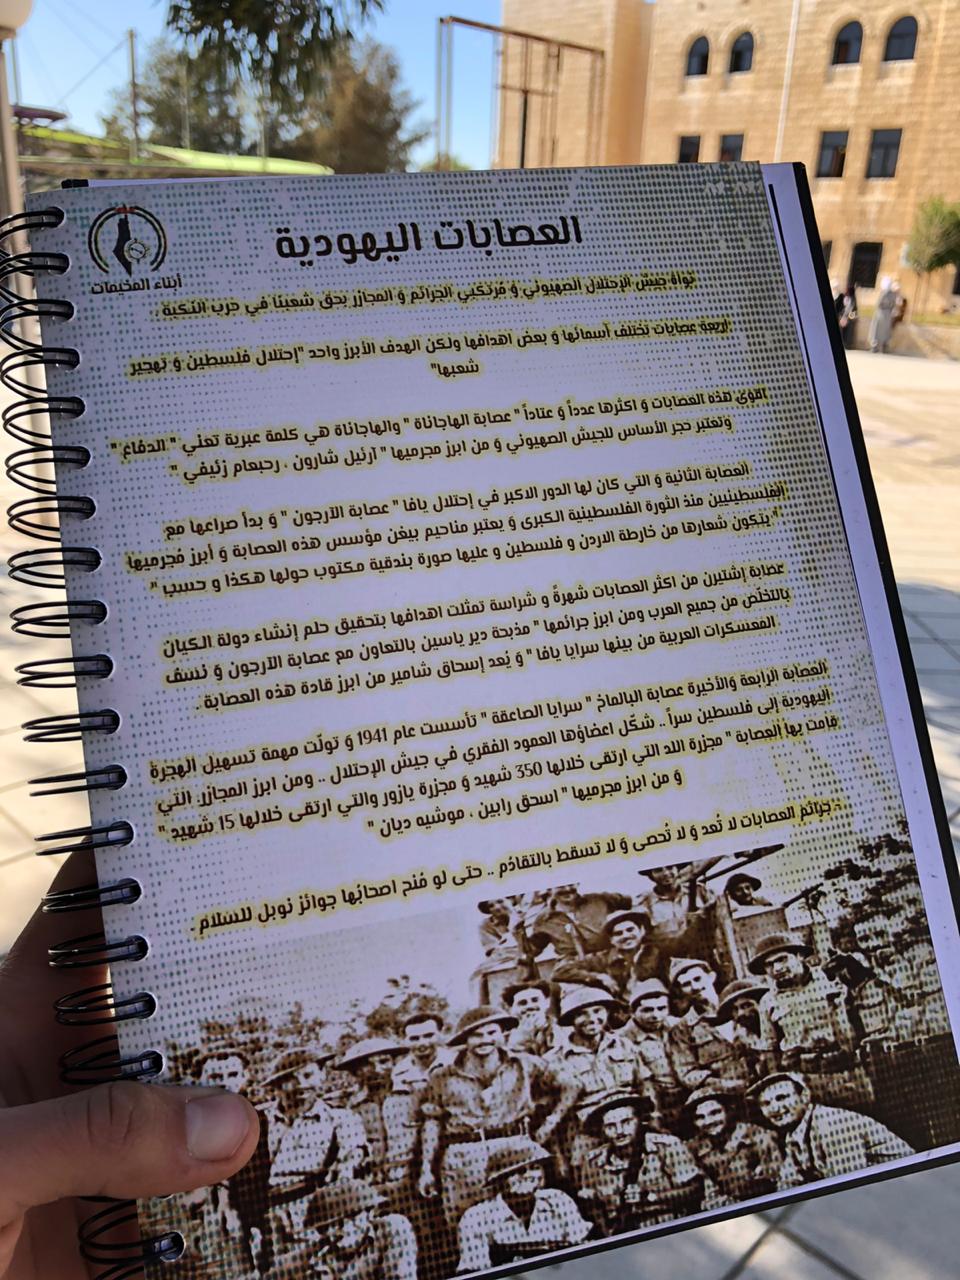 العصابات اليهودية
أبناء المخيمات
نواة جيش الإحتلال الصهيوني وَ مُرتكبي الجرائم وَ المجازر بحق شعبنا في حرب النكبة .
اربعة عصابات تختلف أسمائها وَ بعض اهدافها ولكن الهدف الأبرز واحد "إحتلال فلسطين وَ تهجير
شعبها"
أقوى هذه العصابات وَ اكثرها عدداً وَ عتاداً " عصابة الهاجاناة " والهاجاناة هي كلمة عبرية تعني " الدفاع "
وَتعتبر حجر الأساس للجيش الصهيوني وَ من ابرز مجرميها " آرئيل شارون ، رحبعام زئيفي "
العصابة الثانية وَ التي كان لها الدور الاكبر في إحتلال يافا " عصابة الآرجون " وَ بدأ صراعها مع
الفلسطينيين منذ الثورة الفلسطينية الكبرى وَ يعتبر مناحيم بيغن مؤسس هذه العصابة وَ أبرز مُجرميها
" يتكون شعارها من خارطة الاردن و فلسطين و عليها صورة بندقية مكتوب حولها هكذا و حسب "
عصابة إشتيرن من اكثر العصابات شهرةً و شراسة تمثلت اهدافها بتحقيق حلم إنشاء دولة الكيان
بالتخلّص من جميع العرب ومن ابرز جرائمها " مذبحة دير ياسين بالتعاون مع عصابة الآرجون وَ نسف
المعسكرات العربية من بينها سرايا يافا " وَ يُعد إسحاق شامير من ابرز قادة هذه العصابة .
العصابة الرابعة وَالأخيرة عصابة البالماخ " سرايا الصاعقة " تأسست عام 1941 وَ تولّت مهمة تسهيل الهجرة
اليهودية إلى فلسطين سراً .. شكّل اعضاؤها العمود الفقري في جيش الإحتلال .. ومن ابرز المجازر التي
قامت بها العصابة " مجزرة اللد التي ارتقى خلالها 350 شهيد وَ مجزرة يازور والتي ارتقى خلالها 15 شهيد "
وَ من ابرز مجرميها " اسحق رابين ، موشيه ديان "
- جرائم العصابات لا تُعد وَ لا تُحصى وَ لا تسقط بالتقادُم .. حتى لو مُنح اصحابُها جوائز نوبل للسلام .